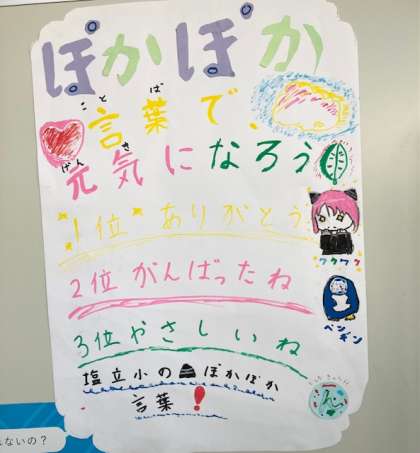 ぽかぽか
こと ば
言葉で、
げん き
元気になろう
1位 ありがとう
ワクワク
2位 がんばったね
ペンギン
3位 やさしいね
塩立小のぽかぽか
言葉!
えないの?